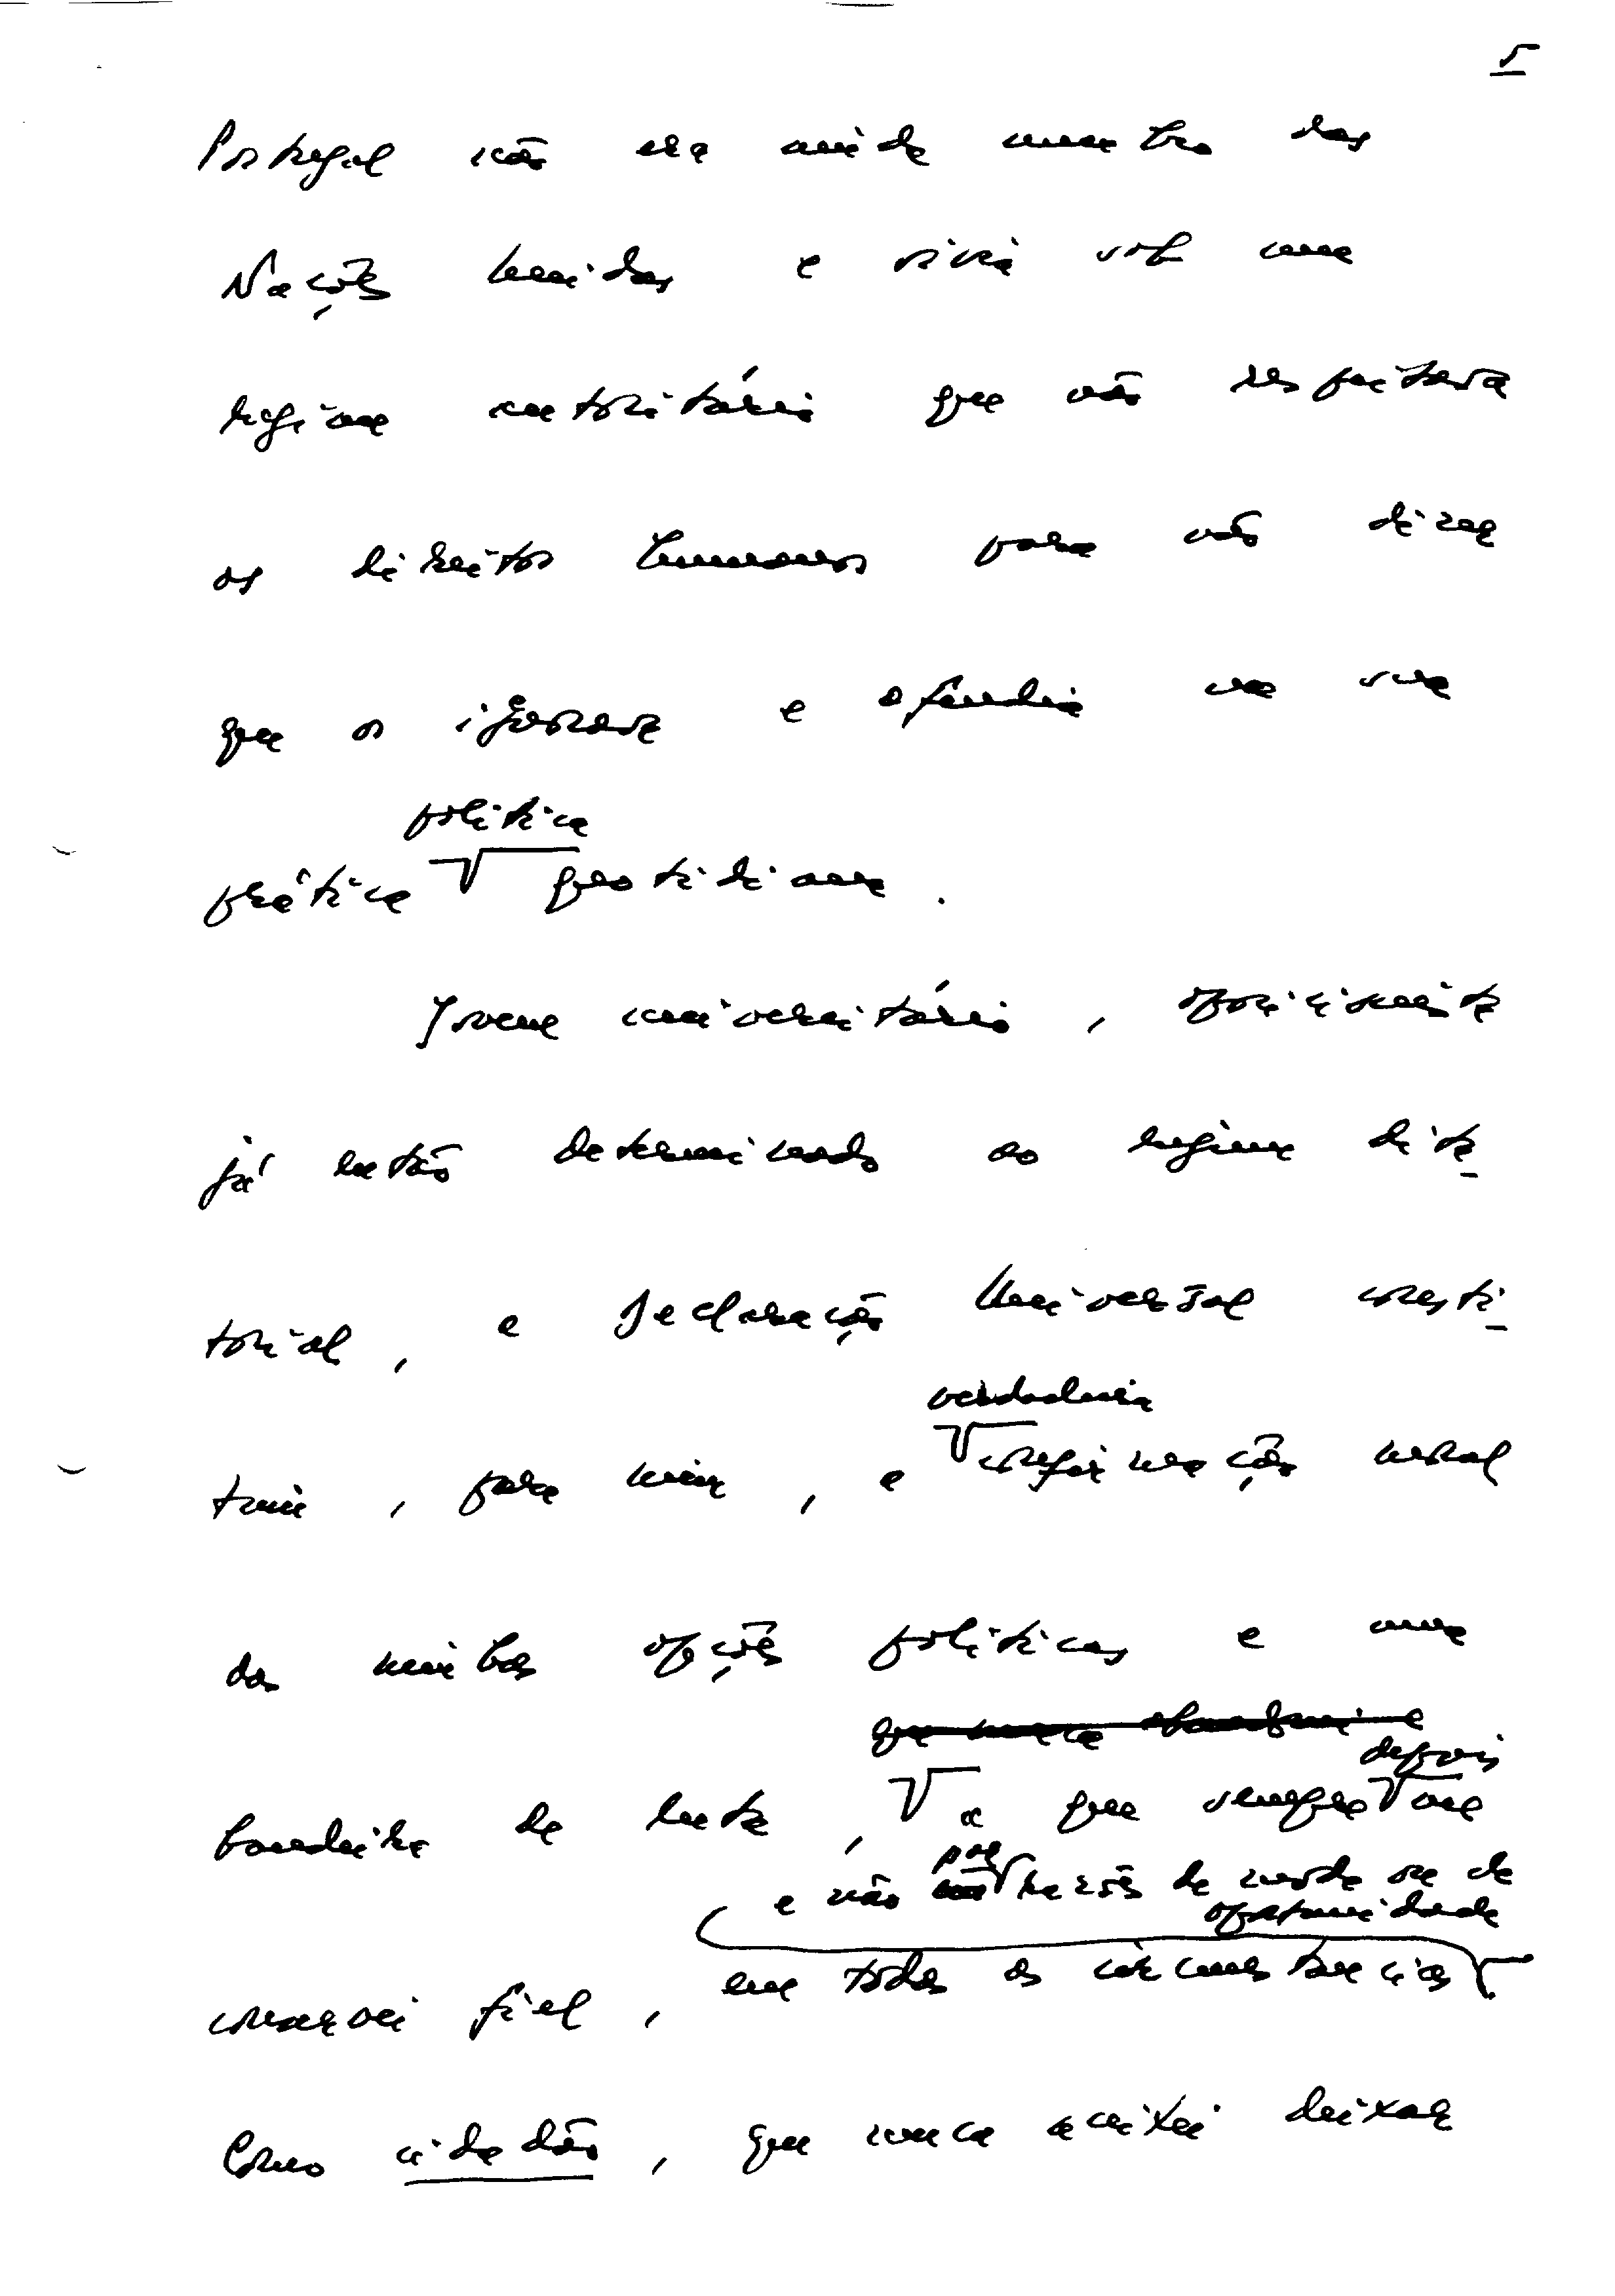 5
Portugal não era ainda membro das
Nações Unidas e vivia sob um
regime autoritário que não respeitava
os direitos humanos para não dizer
que os ignorava e ofendia na sua
política
prática quotidiana.
Jovem universitário, oposicionista
já então determinado ao regime dita-
torial, a Declaração Universal consti-
verdadeira
tuiu, para mim, a configuração moral
das minhas opções políticas e uma
que nunca abandonei e
depois
bandeira de luta, a que sempre me
e não por razões de moda ou de
oportunidade
conservei fiel, em todas as circunstâncias
Como cidadão, que nunca aceitei deixar